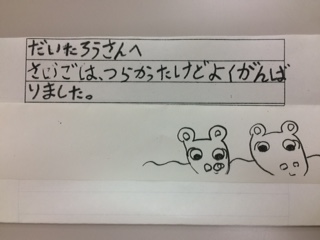 だいたろうさんへ
さいごは、つらかったけどよくがんば
りました。